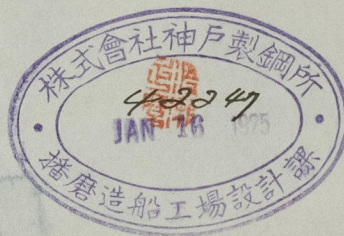 株式會社神戸製鋼所
42247
JAN 16 1925
播磨造船工場設計課